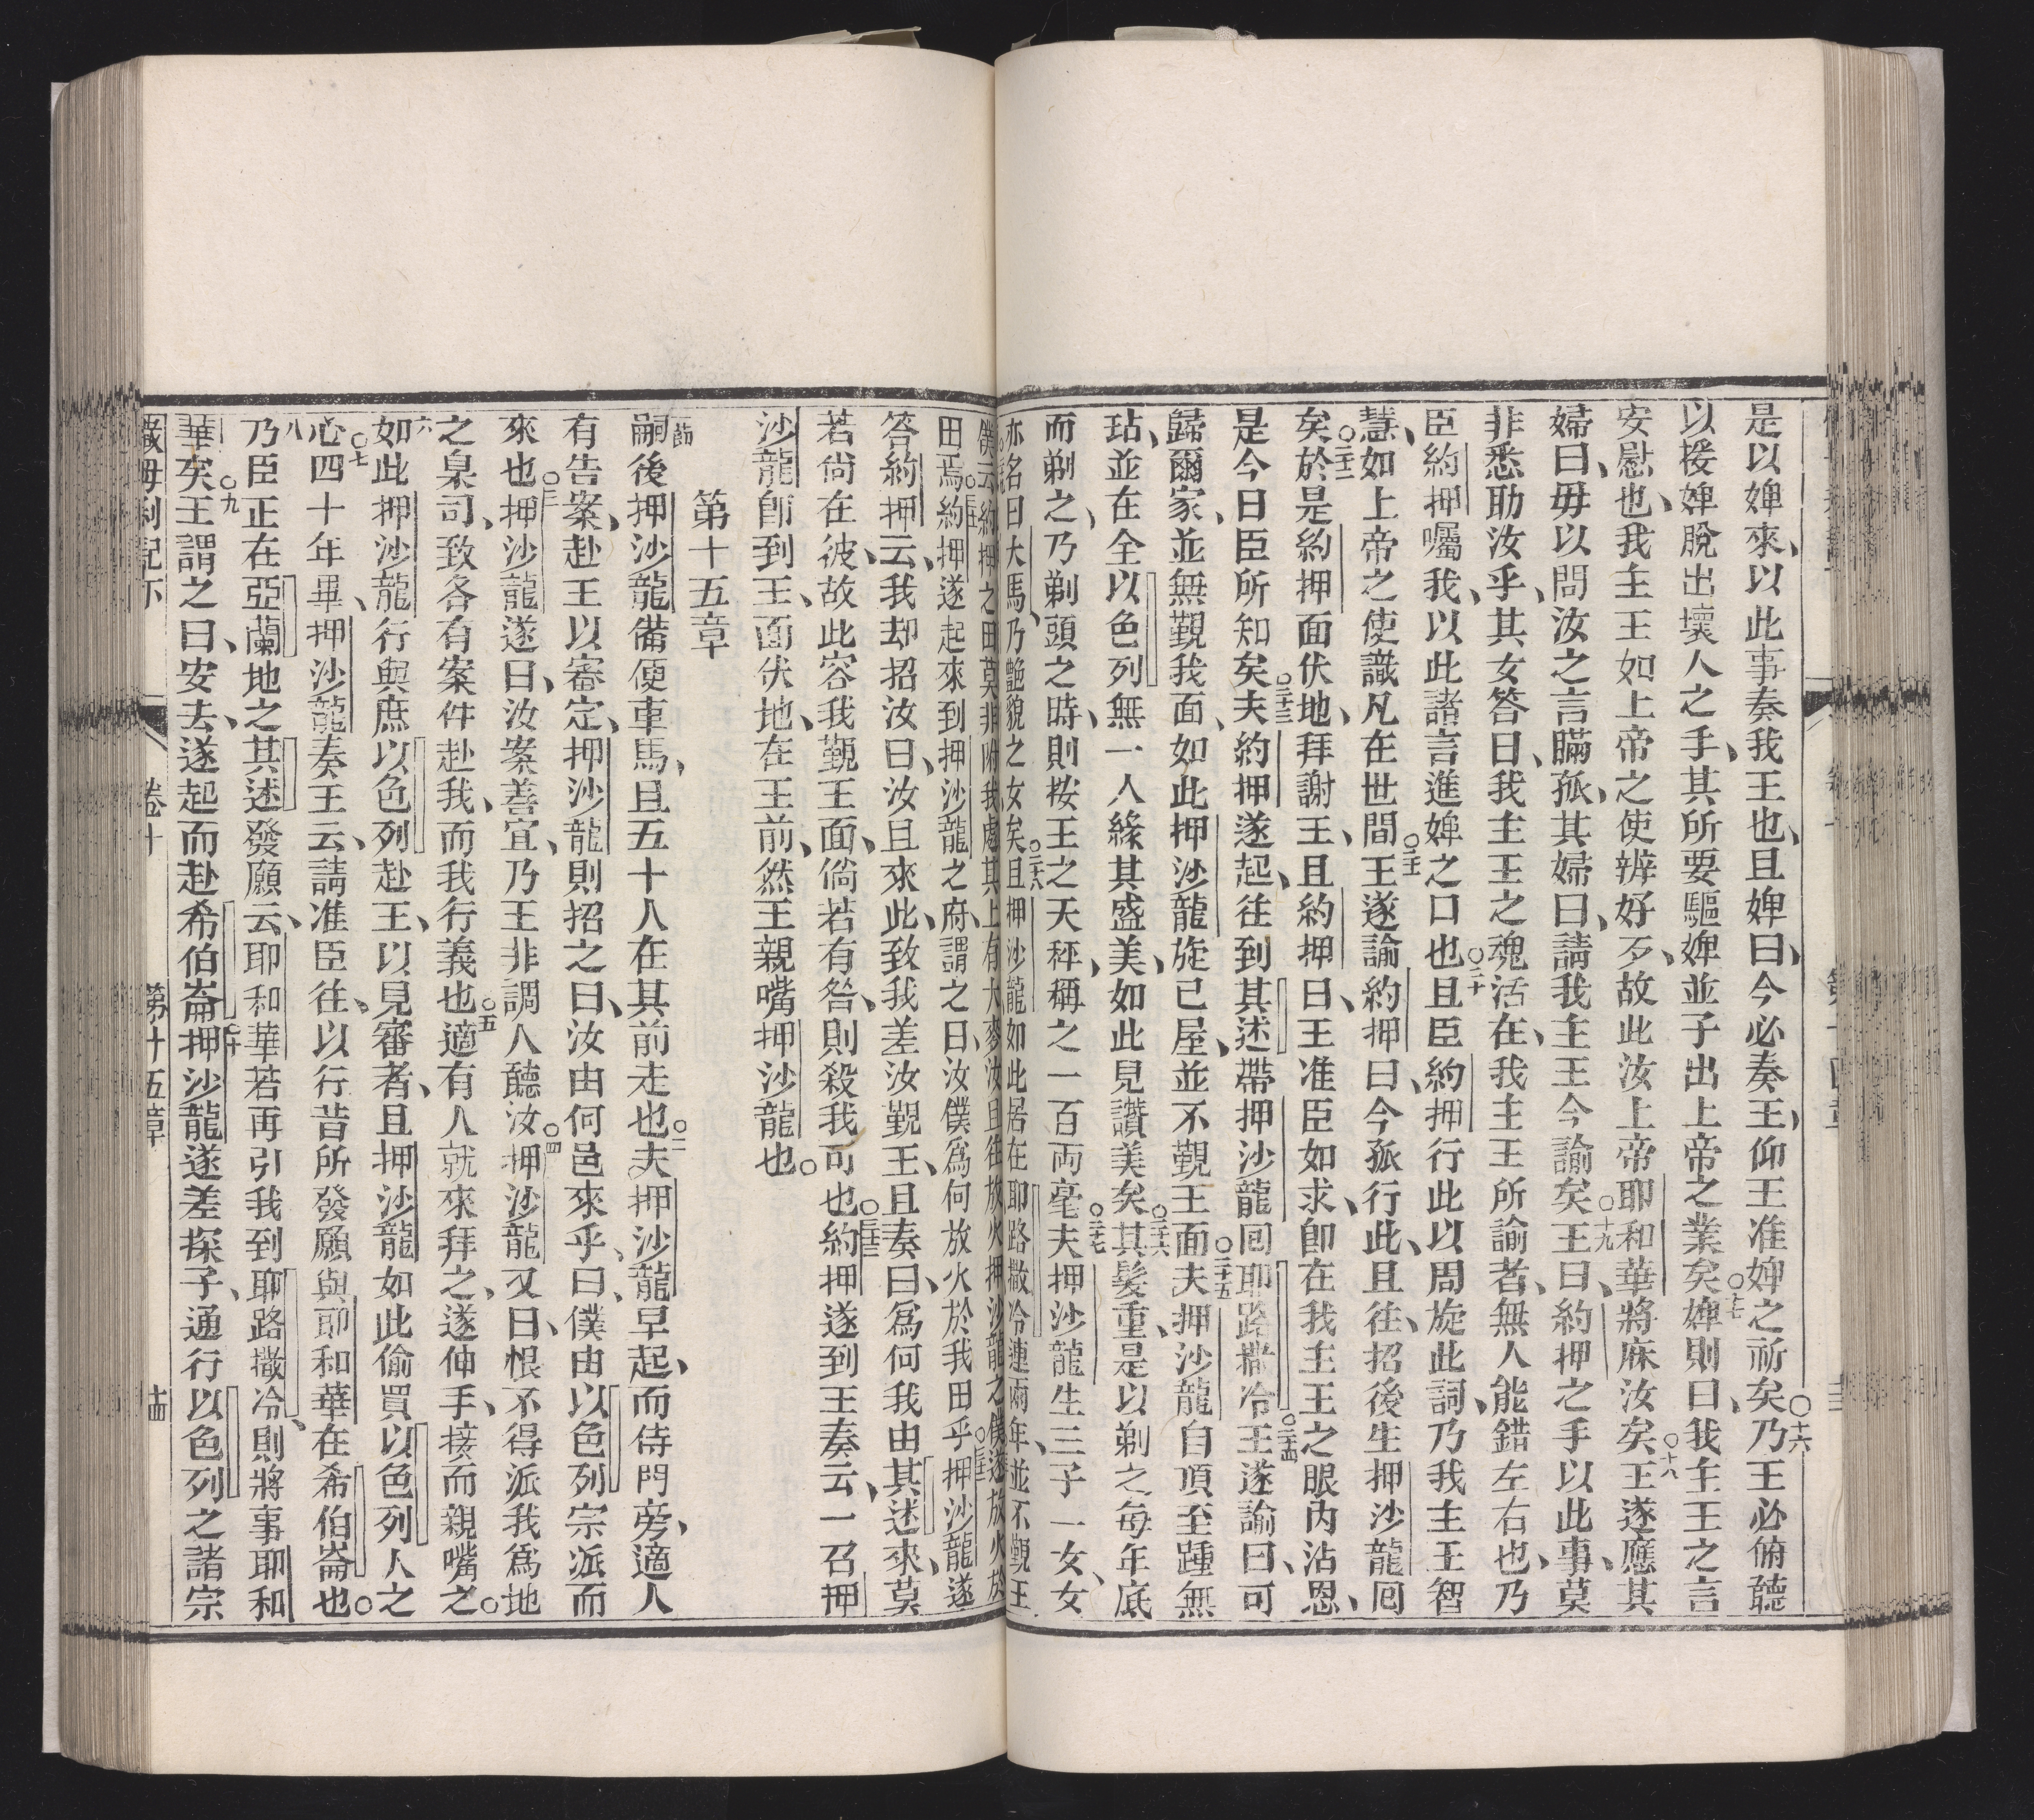 是以婢來、以此事奏我王也、且婢曰、今必奏王、仰王准婢之祈矣○十六乃王必俯聽
以援婢脫出壞人之手、其所要驅婢並子出上帝之業矣○十七婢則曰、我主王之言
安慰也、我主王如上帝之使辨好歹、故此汝上帝耶和華將庥汝矣○十八王遂應其
婦曰、毋以問汝之言瞞孤、其婦曰、請我主王今諭矣○十九王曰、約押之手以此事、莫
非悉助汝乎、其女答曰、我主王之魂活在、我主王所諭者、無人能錯左右也、乃
臣約押囑我、以此諸言進婢之口也○二十且臣約押行此以周旋此詞、乃我主王智
慧、如上帝之使識凡在世間○二十一王遂諭約押曰、今孤行此、且往、招後生押沙龍囘
矣○二十二於是約押面伏地、拜謝王、且約押曰、王准臣如求、卽在我主王之眼內沾恩、
是今日臣所知矣○二十三夫約押遂起、往到其述帶押沙龍囘耶路撒冷○二十四王遂諭曰、可
歸爾家、並無覲我面、如此押沙龍旋己屋、並不覲王面○二十五夫押沙龍自頂至踵無
玷、並在全以色列無一人緣其盛美、如此見讚美矣○二十六其髮重、是以剃之每年底
而剃之、乃剃頭之時、則按王之天秤、稱之一百両毫○二十七夫押沙龍生三子一女、女
亦名曰大馬、乃艷貌之女矣○二十八且押沙龍如此居在耶路撒冷連兩年、並不覲王
僕云、約押之田莫非附我處、其上有大麥、汝且往放火、押沙龍之僕遂放火於
田焉○三十一約押遂起來到押沙龍之府、謂之曰、汝僕爲何放火於我田乎○三十二押沙龍遂
答約押云、我却招汝曰、汝且來此、致我差汝覲王、且奏曰、爲何我由其述來、莫
若尙在彼、故此容我覲王面、倘若有咎、則殺我可也○三十三約押遂到王奏云、一召押
沙龍卽到王、面伏地、在王前、然王親嘴押沙龍也○
第十五章
一節嗣後押沙龍備便車馬、且五十人在其前走也○二夫押沙龍早起、而侍門旁、適人
有告案、赴王以審定、押沙龍則招之曰、汝由何邑來乎、曰、僕由以色列宗派而
來也○三押沙龍遂曰、汝案善宜、乃王非調人聽汝○四押沙龍又曰、恨不得派我爲地
之臬司、致各有案件赴我、而我行義也○五適有人就來拜之、遂伸手、接而親嘴之○
六如此押沙龍行與庶以色列赴王、以見審者、且押沙龍如此偷買以色列人之
心○七四十年畢、押沙龍奏王云、請准臣往、以行昔所發願與耶和華在希伯崙也○
八乃臣正在亞蘭地之其述發願云、耶和華若再引我到耶路撒冷、則將事耶和
華矣○九王謂之曰、安去、遂起而赴希伯崙○十押沙龍遂差探子、通行以色列之諸宗
卷十　第十五章　十四